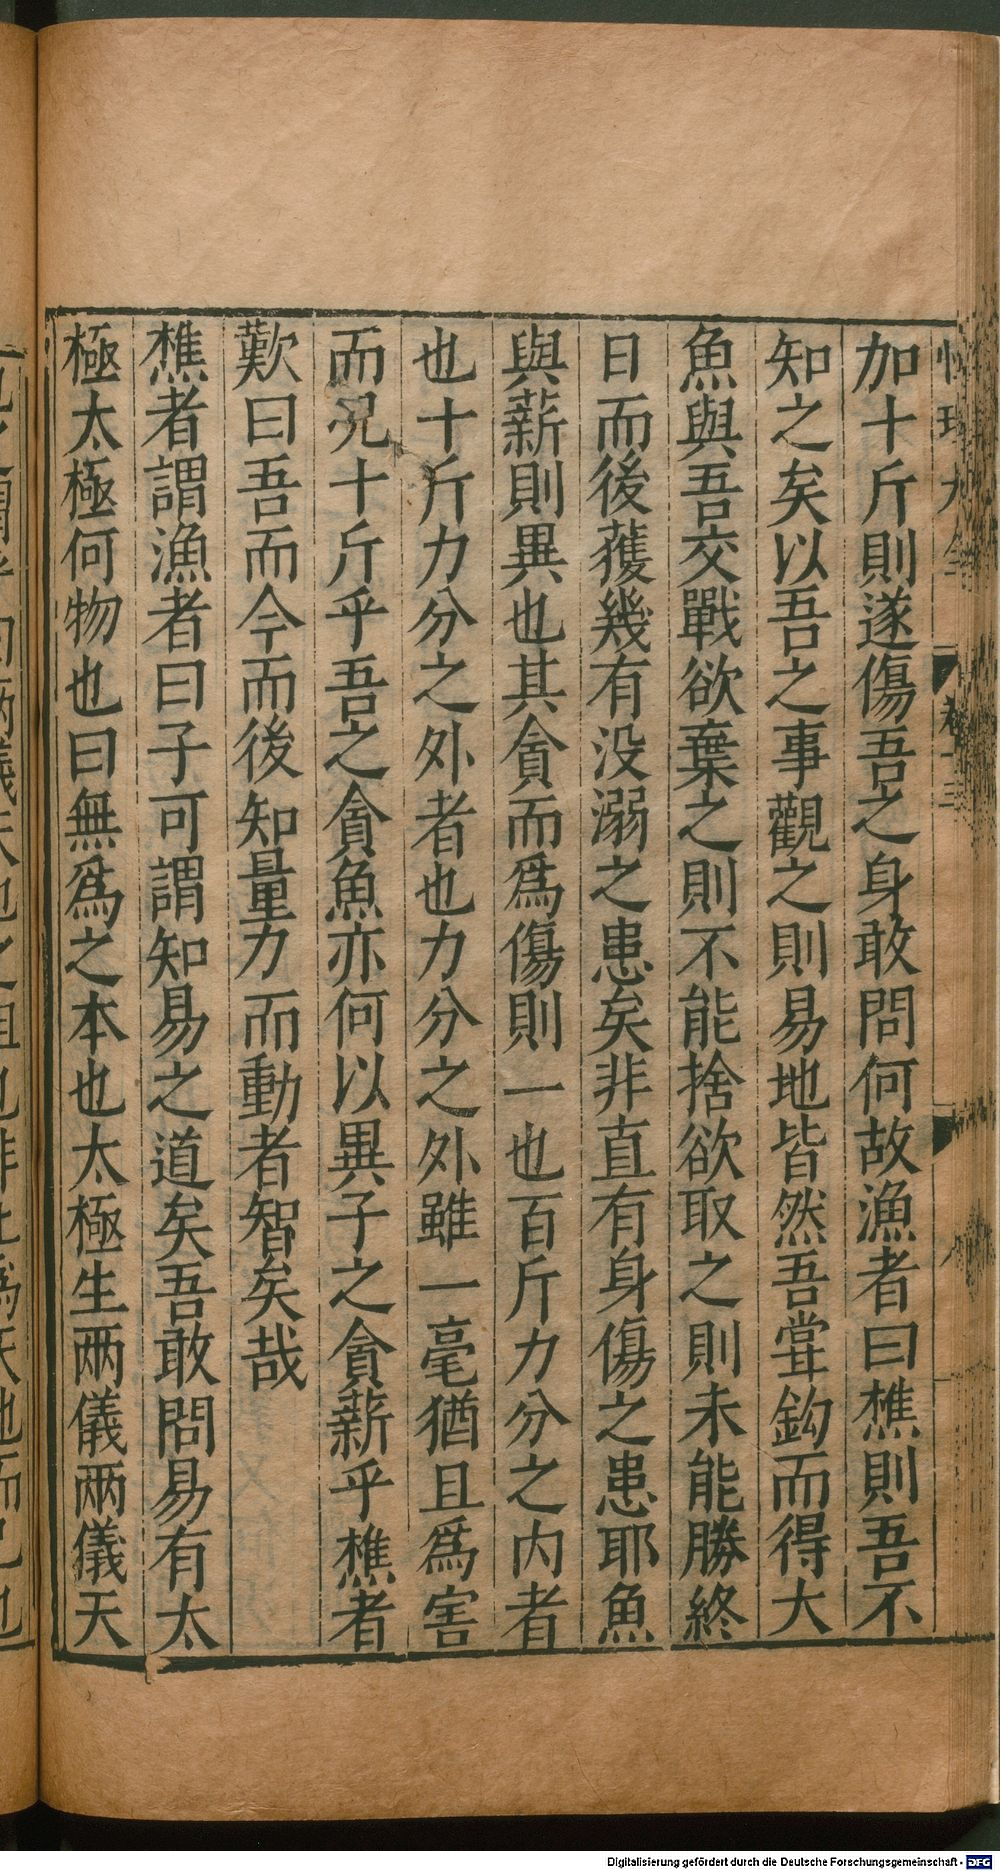 加十斤則遂傷吾之身敢問何故漁者曰樵則吾不
知之矣以吾之事觀之則易地皆然吾甞鈎而得大
魚與吾交戰欲棄之則不能捨欲取之則未能勝終
日而後䕶幾有没溺之患矣非直有身傷之患耶魚
與薪則異也其貪而爲傷則一也百斤力分之内者
也十斤力分之外者也力分之外雖一毫猶且爲害
而况十斤乎吾之貪魚亦何以異子之貪薪乎樵者
歎曰吾而今而後知量力而動者智矣哉
樵者謂漁者曰子可謂知易之道矣吾敢問易有太
極太極何物也曰無爲之本也太極生兩儀兩儀天
Digitalisierung gefördert durch die Deutsche Forschungsgemeinschaft - DFG